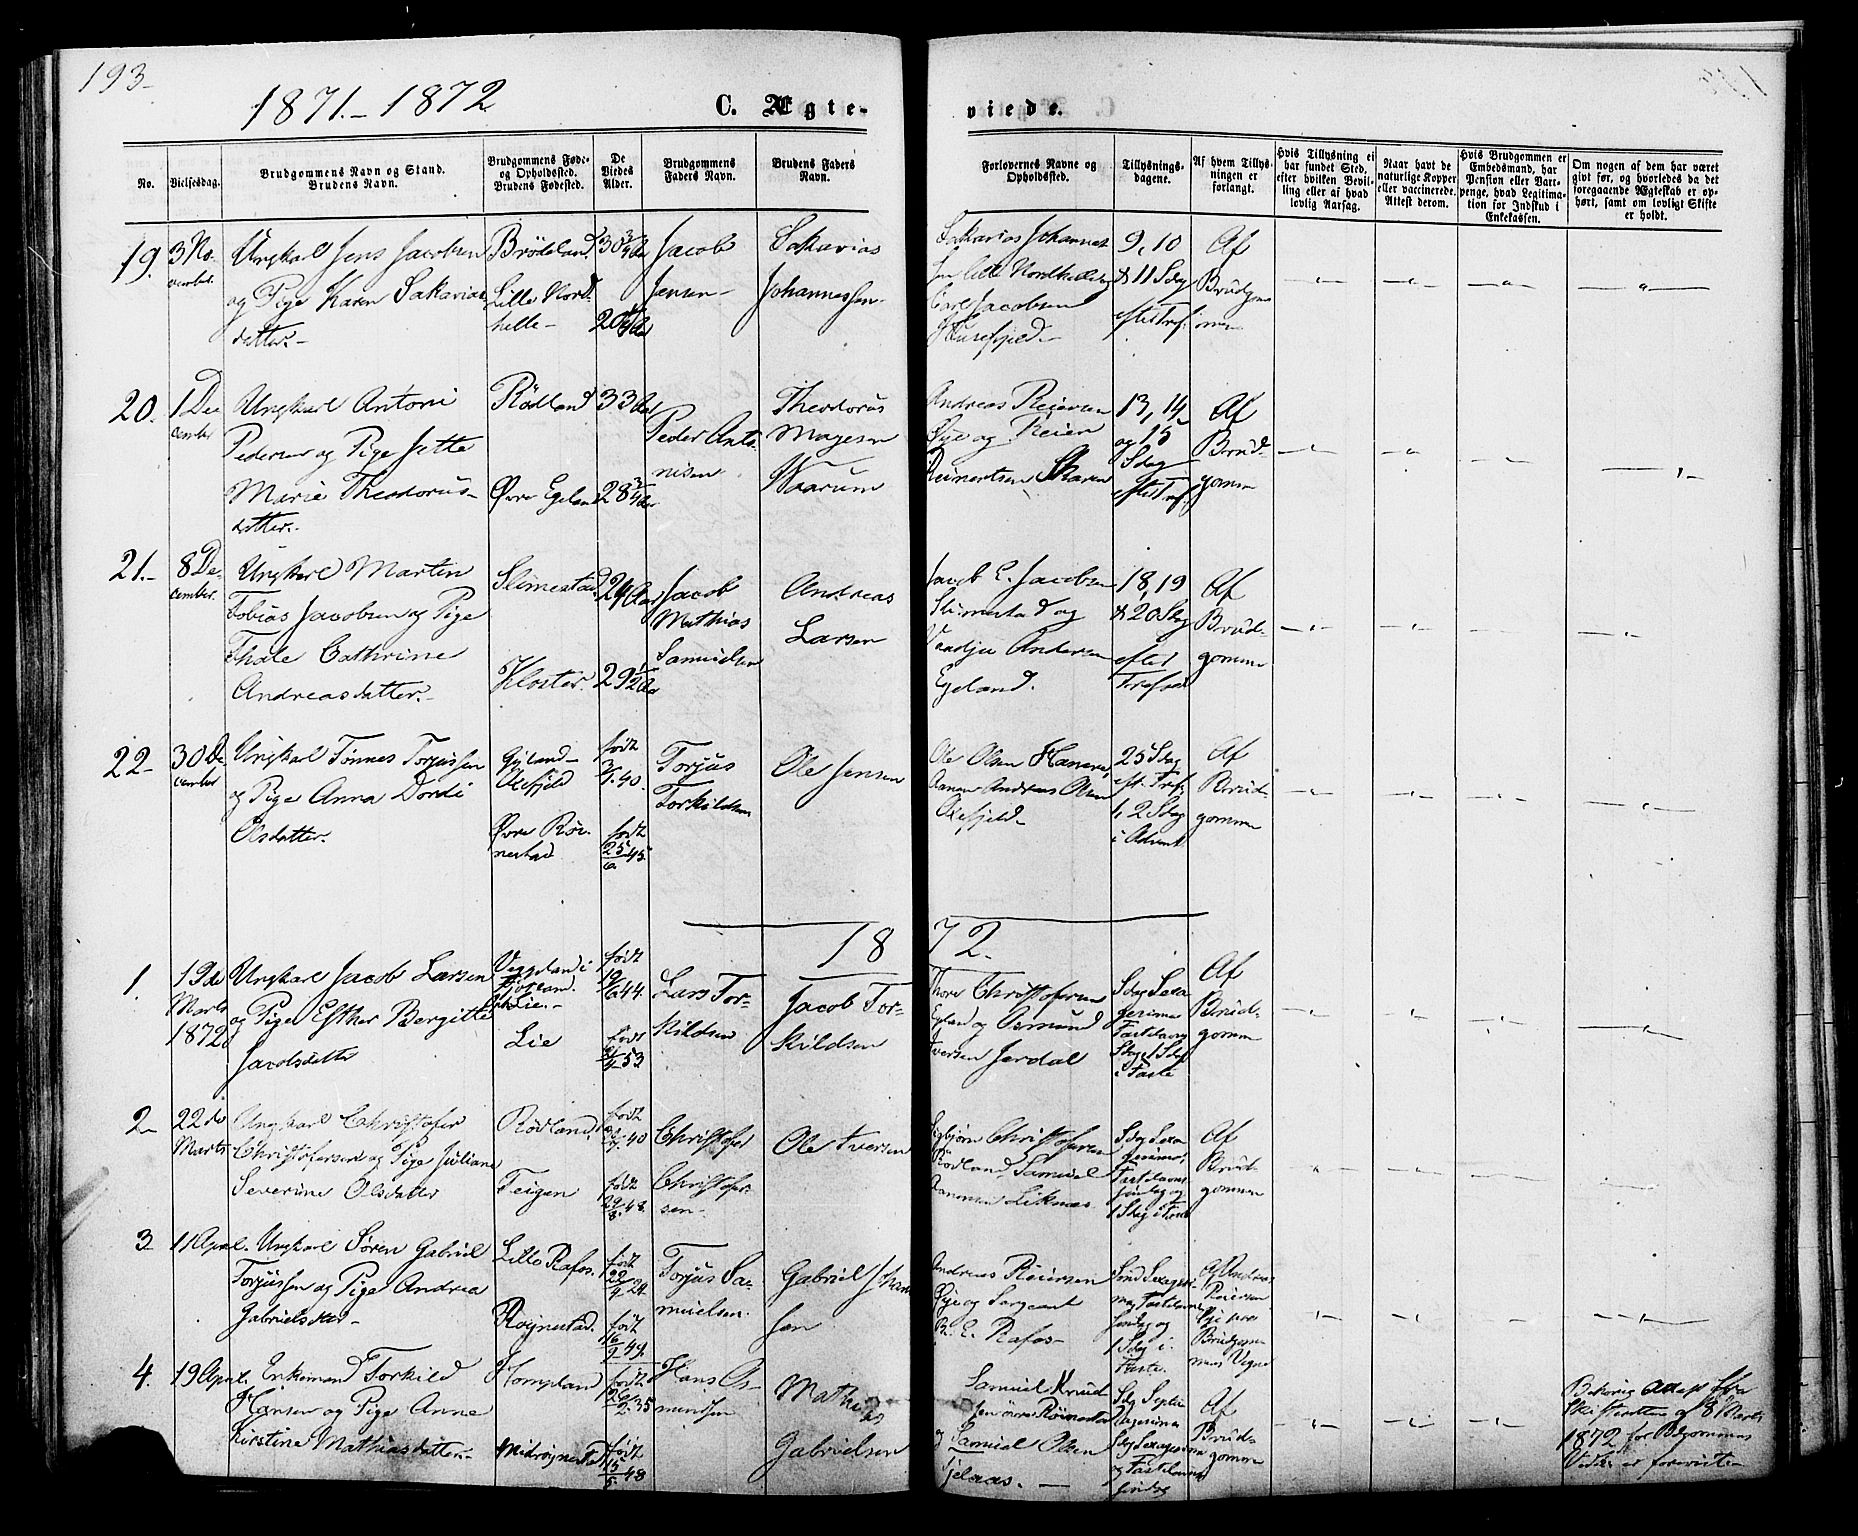 193-
1871.-1872
C. Ægte-
viede.
No.
Vielsesdag.
Brudgommens Navn og Stand.
Brudens Navn.
Brudgommens Føde-
og Opholdssted.
Brudens Fødested.
De
Viedes
Alder.
Brudgommens
Faders Navn.
Brudens Faders
Navn.
Forlovernes Navne og
Opholdssted.
Tillysnings-
dagene.
Af hvem Tillys-
ningen er
forlangt.
Hvis Tillysning ei
har fundet Sted,
efter hvilken Bevil-
ling eller af hvad
lovlig Aarsag.
Naar havt de
naturlige Kopper
eller vaccinerede.
Attest derom.
Hvis Brudgommen er
Embedsmand, har
Pension eller Vart-
penge, hvad Legitima-
tion for Indskud i
Enkekassen.
Om nogen af dem har været
givt før, og hvorledes da det
foregaaende Ægteskab er op-
hørt, samt om lovligt Skifte
er holdt.
19.
3 No-
vember
Ungkarl Jens Jacobsen
og Pige Karen Sakarias
datter.-
Brødeland
Lille Nord-
helle-
30 3/4 Aar
20
Jacob
Jensen-
Sakarias
Johannessen-
Sakarias Johannes
sen lille Nordhelle og
Carl Jacobsen
9, 10
& 11 Sdag
efter Tref.
Af
Brudgom
men
20.
1 De
cember
Ungkarl Antoni
Pedersen og Pige Jette
Marie Theodorus-
datter.-
Rødland
Øvre Egeland
33 Aar
28 3/4 Aar
Peder Anto-
nisen
Theodorus
Magesen
Waarum
Andreas Reiersen
Øye og Reier
Reinertsen
13, 14
og 15
Sdag
efter Tref.
Af
Brud-
gomm
21.-
8 De-
cember.
Ungkarl Martin
Tobias Jacobsen og Pige
Thale Cathrine
Andreasdatter.-
Slimestad
Kloster.
24 Aar
29 1/2 Aar
Jacob
Mathias
Samuelsen
Andreas
Larsen
Jacob E. Jacobsen
Slimestad og
Andersen
Egeland.
18, 19
& 20 Sdag
efter
Trefold
Af
Brud-
gomme
22-
30 De
cember
Ungkarl Tønnes Torjussen
og Pige Anna Dordi
Olsdatter.
Gyland-
Olefjeld
Øvre Røi-
nestad
født
3/1.40.
født
25/6 45.
Torjus
Torkildsen
Ole Jensen
Ole Olsen
Andreas Olsen
Olefjeld.
25 Sdag
eft. Tref.
1, 2 Sdag
i Advent
Af
Brud-
gomme
1872.
1.
19de
Marts
1872
Ungkarl Jacob Larsen
og Pige Esther Bergitte
Jacobsdatter
Lie
født
19/6 44.
født
53
Lars Tor-
kildsen
Jacob Tor-
kildsen
Thore Christofersen
Egeland og Osmund
Iversen Jerdal
Sdag Sexa
gesima
Fastelavns
Sdag 1 Sdag
i Faste
Af
Brud-
gomm
2-
22de
Marts
Ungkarl Christofer
Christofersen og Pige Juliane
Severine Olsdatter
Rødland,
Feigen
født
40
født
29/8.48.
Christofer
Christofer-
sen-
Ole Iversen
Christofersen
Rødland, Samuel
Aanensen Liknæs
Sdag Sexa
gesima,
Fastelavns
søndag og
1 Sdag i Faste
Af
Brud-
gomme
3-
11 April.
Ungkarl Søren Gabriel
Torjussen og Pige Andrea
Gabrielsdtr-
Lille Rafos.
Røynestad.
født
født
16/9 49.
Torjus Sa-
muelsen.
Gabriel
sen
Andreas Reiersen
Øye og Sergeant
R. E. Rafos-
Fastelavns
søndag og
1 Sdag i
Faste.
Af Andreas
Reiersen
Øye paa
Brudgom
mens Vegne
4.
19 April.
Enkemand Torkild
Hansen og Pige Anne
Kirstine Mathiasdatter.-
Hompland
født
26/2.35
født
15/5.48
Hans Os-
mundsen
Mathias
Gabrielsen
Samuel Knud
sen øvre Røinestad
og Samuel Olsen
Fjelaas. -
Sdag Septua
gesima
Sdag Sexagesima
og Fastelavns
søndag
Af
Brud-
gomm
attest fra
Skifteretten af 8 Marts
1872 for Brgommens
er forevist-